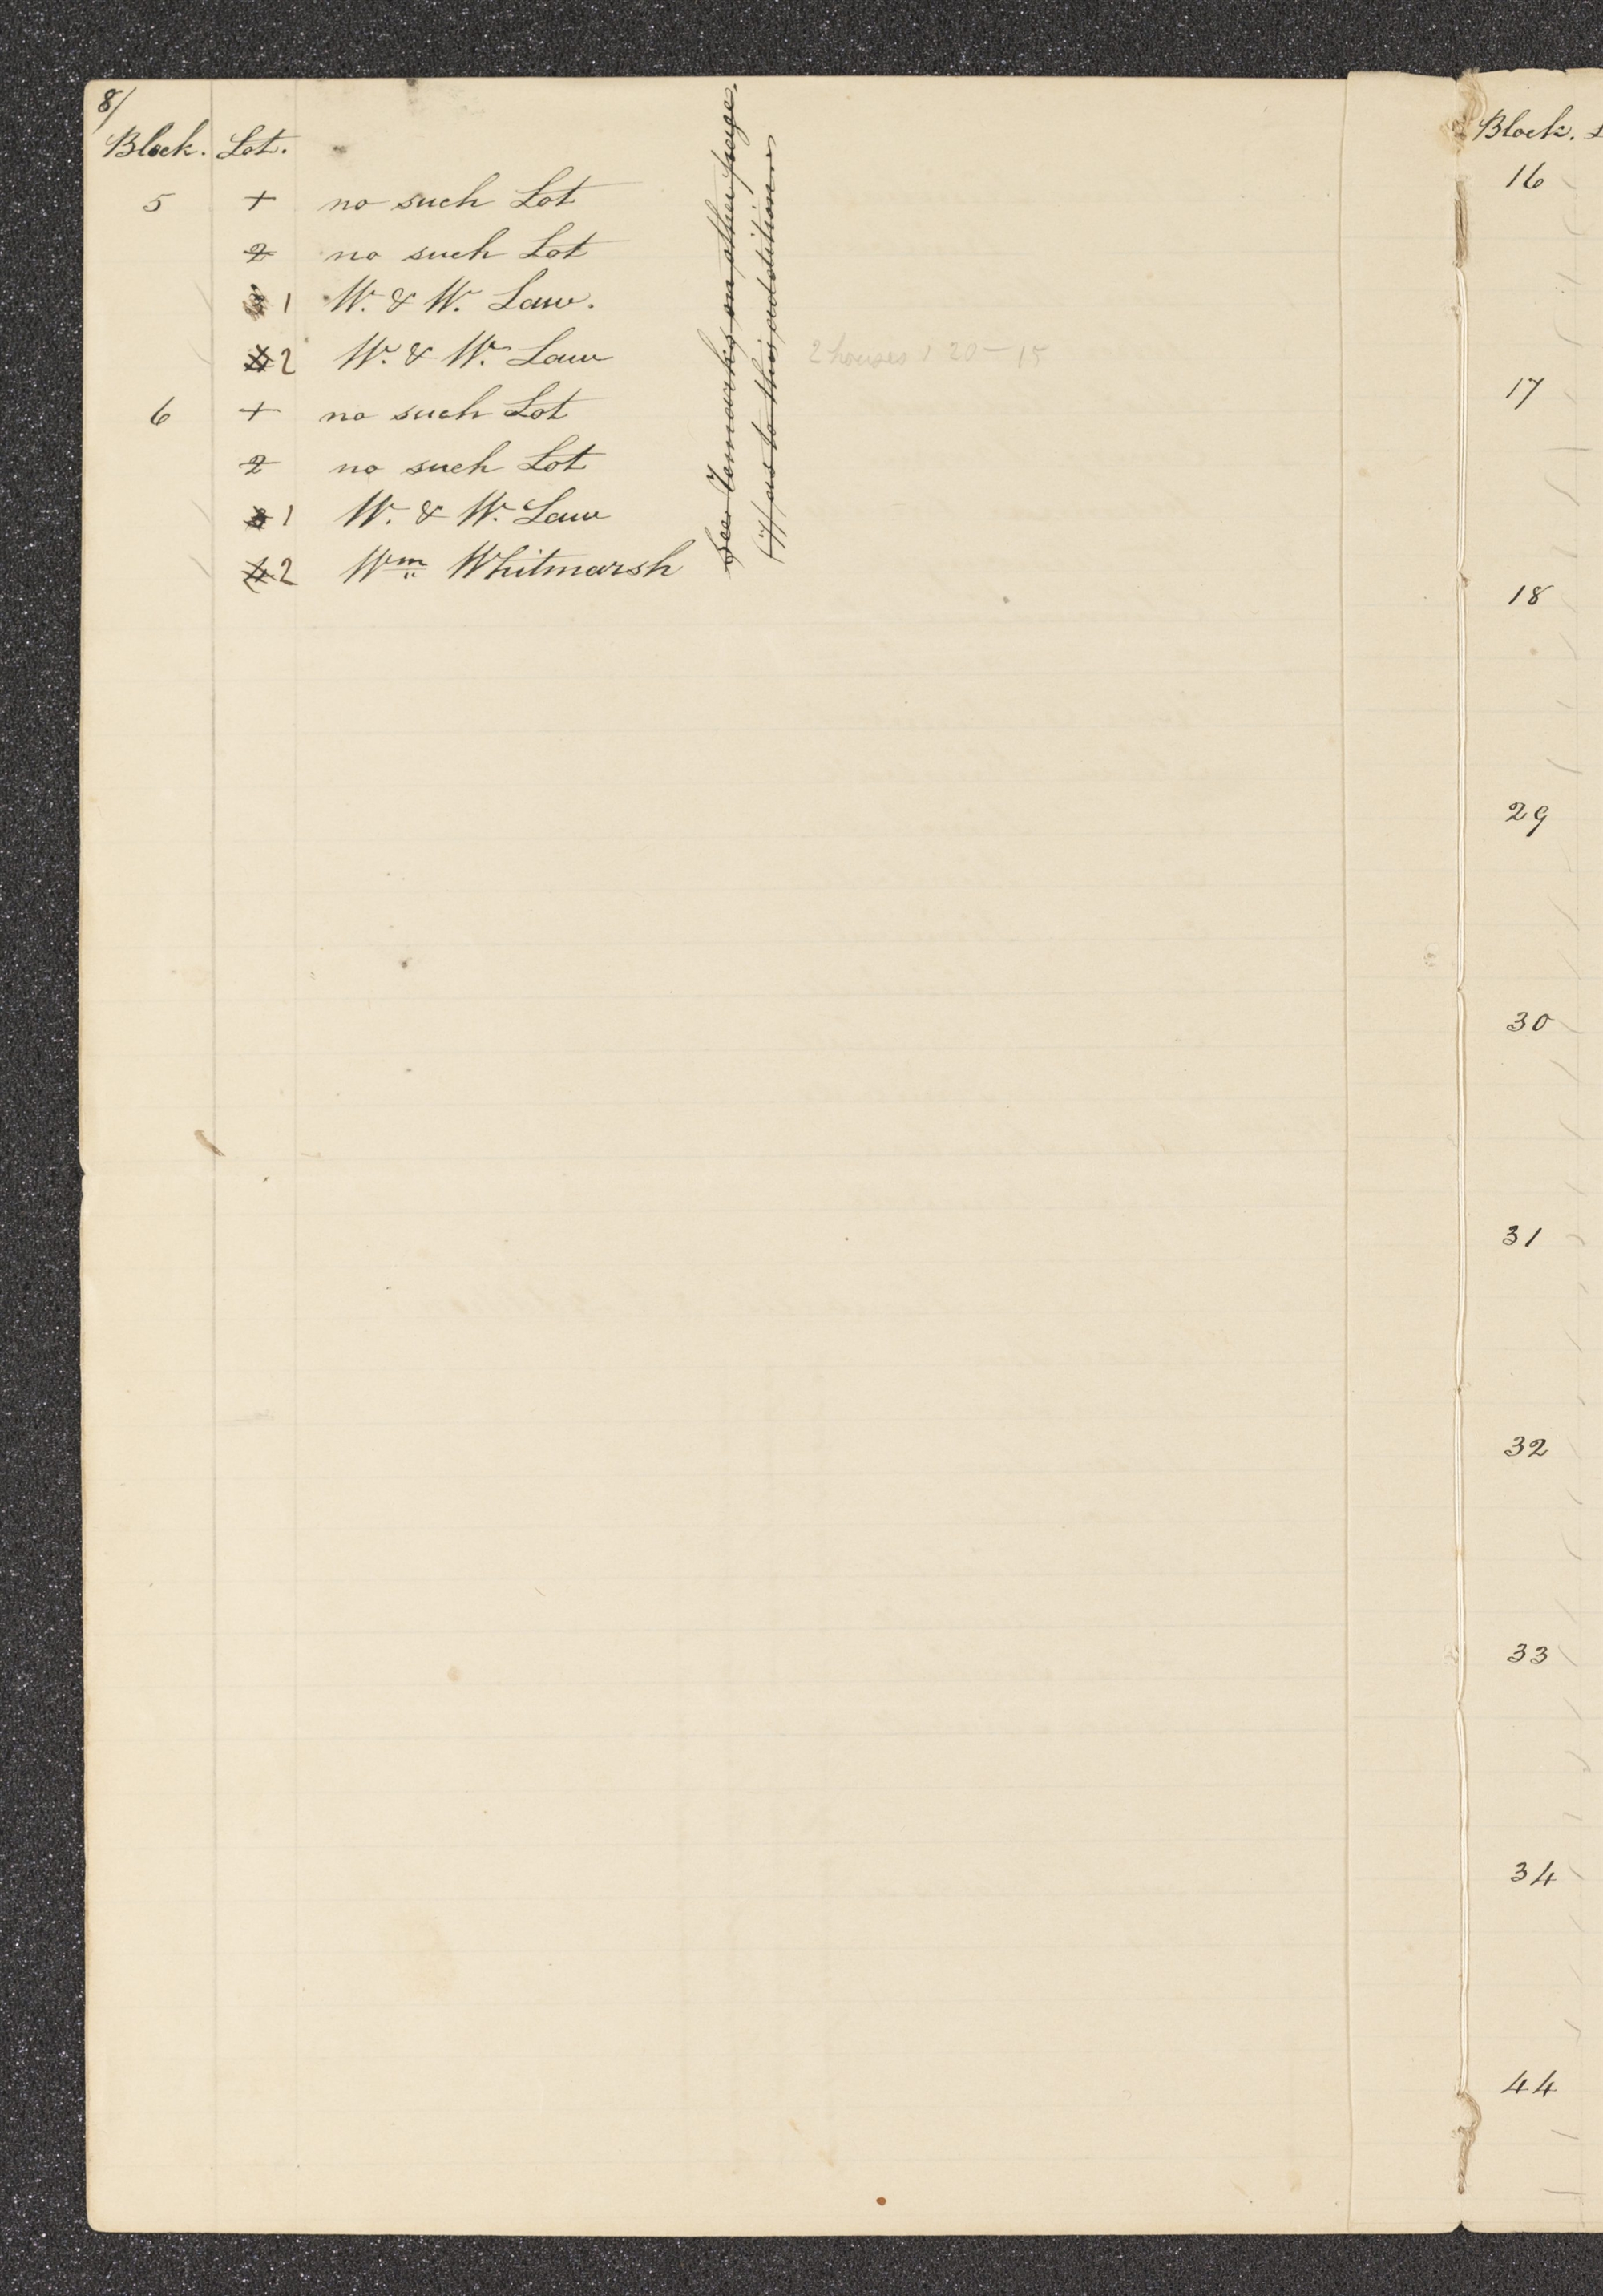 8/
Block. Lot.
5 1 no such Lot
2 no such Lot
3 1 W. & W. Law.
4 2 W. & W. Law 2 houses 1 20 - 15
6 1 no such Lot
2 no such Lot
3 1 W. & W. Law
4 2 Wm Whitmarsh
See remarks on other page.
as to this addition
Block. L
16
17
18
29
30
31
32
33
34
44